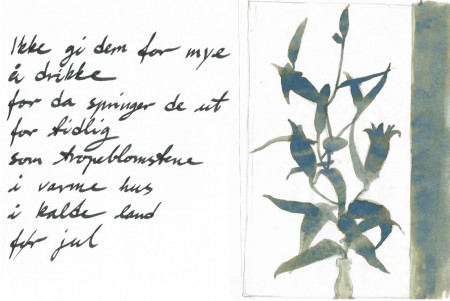 Ikke gi dem for mye
å drikke
for da springer de ut
for tidlig
som tropeblomstene
i varme hus
i kalde land
før jul